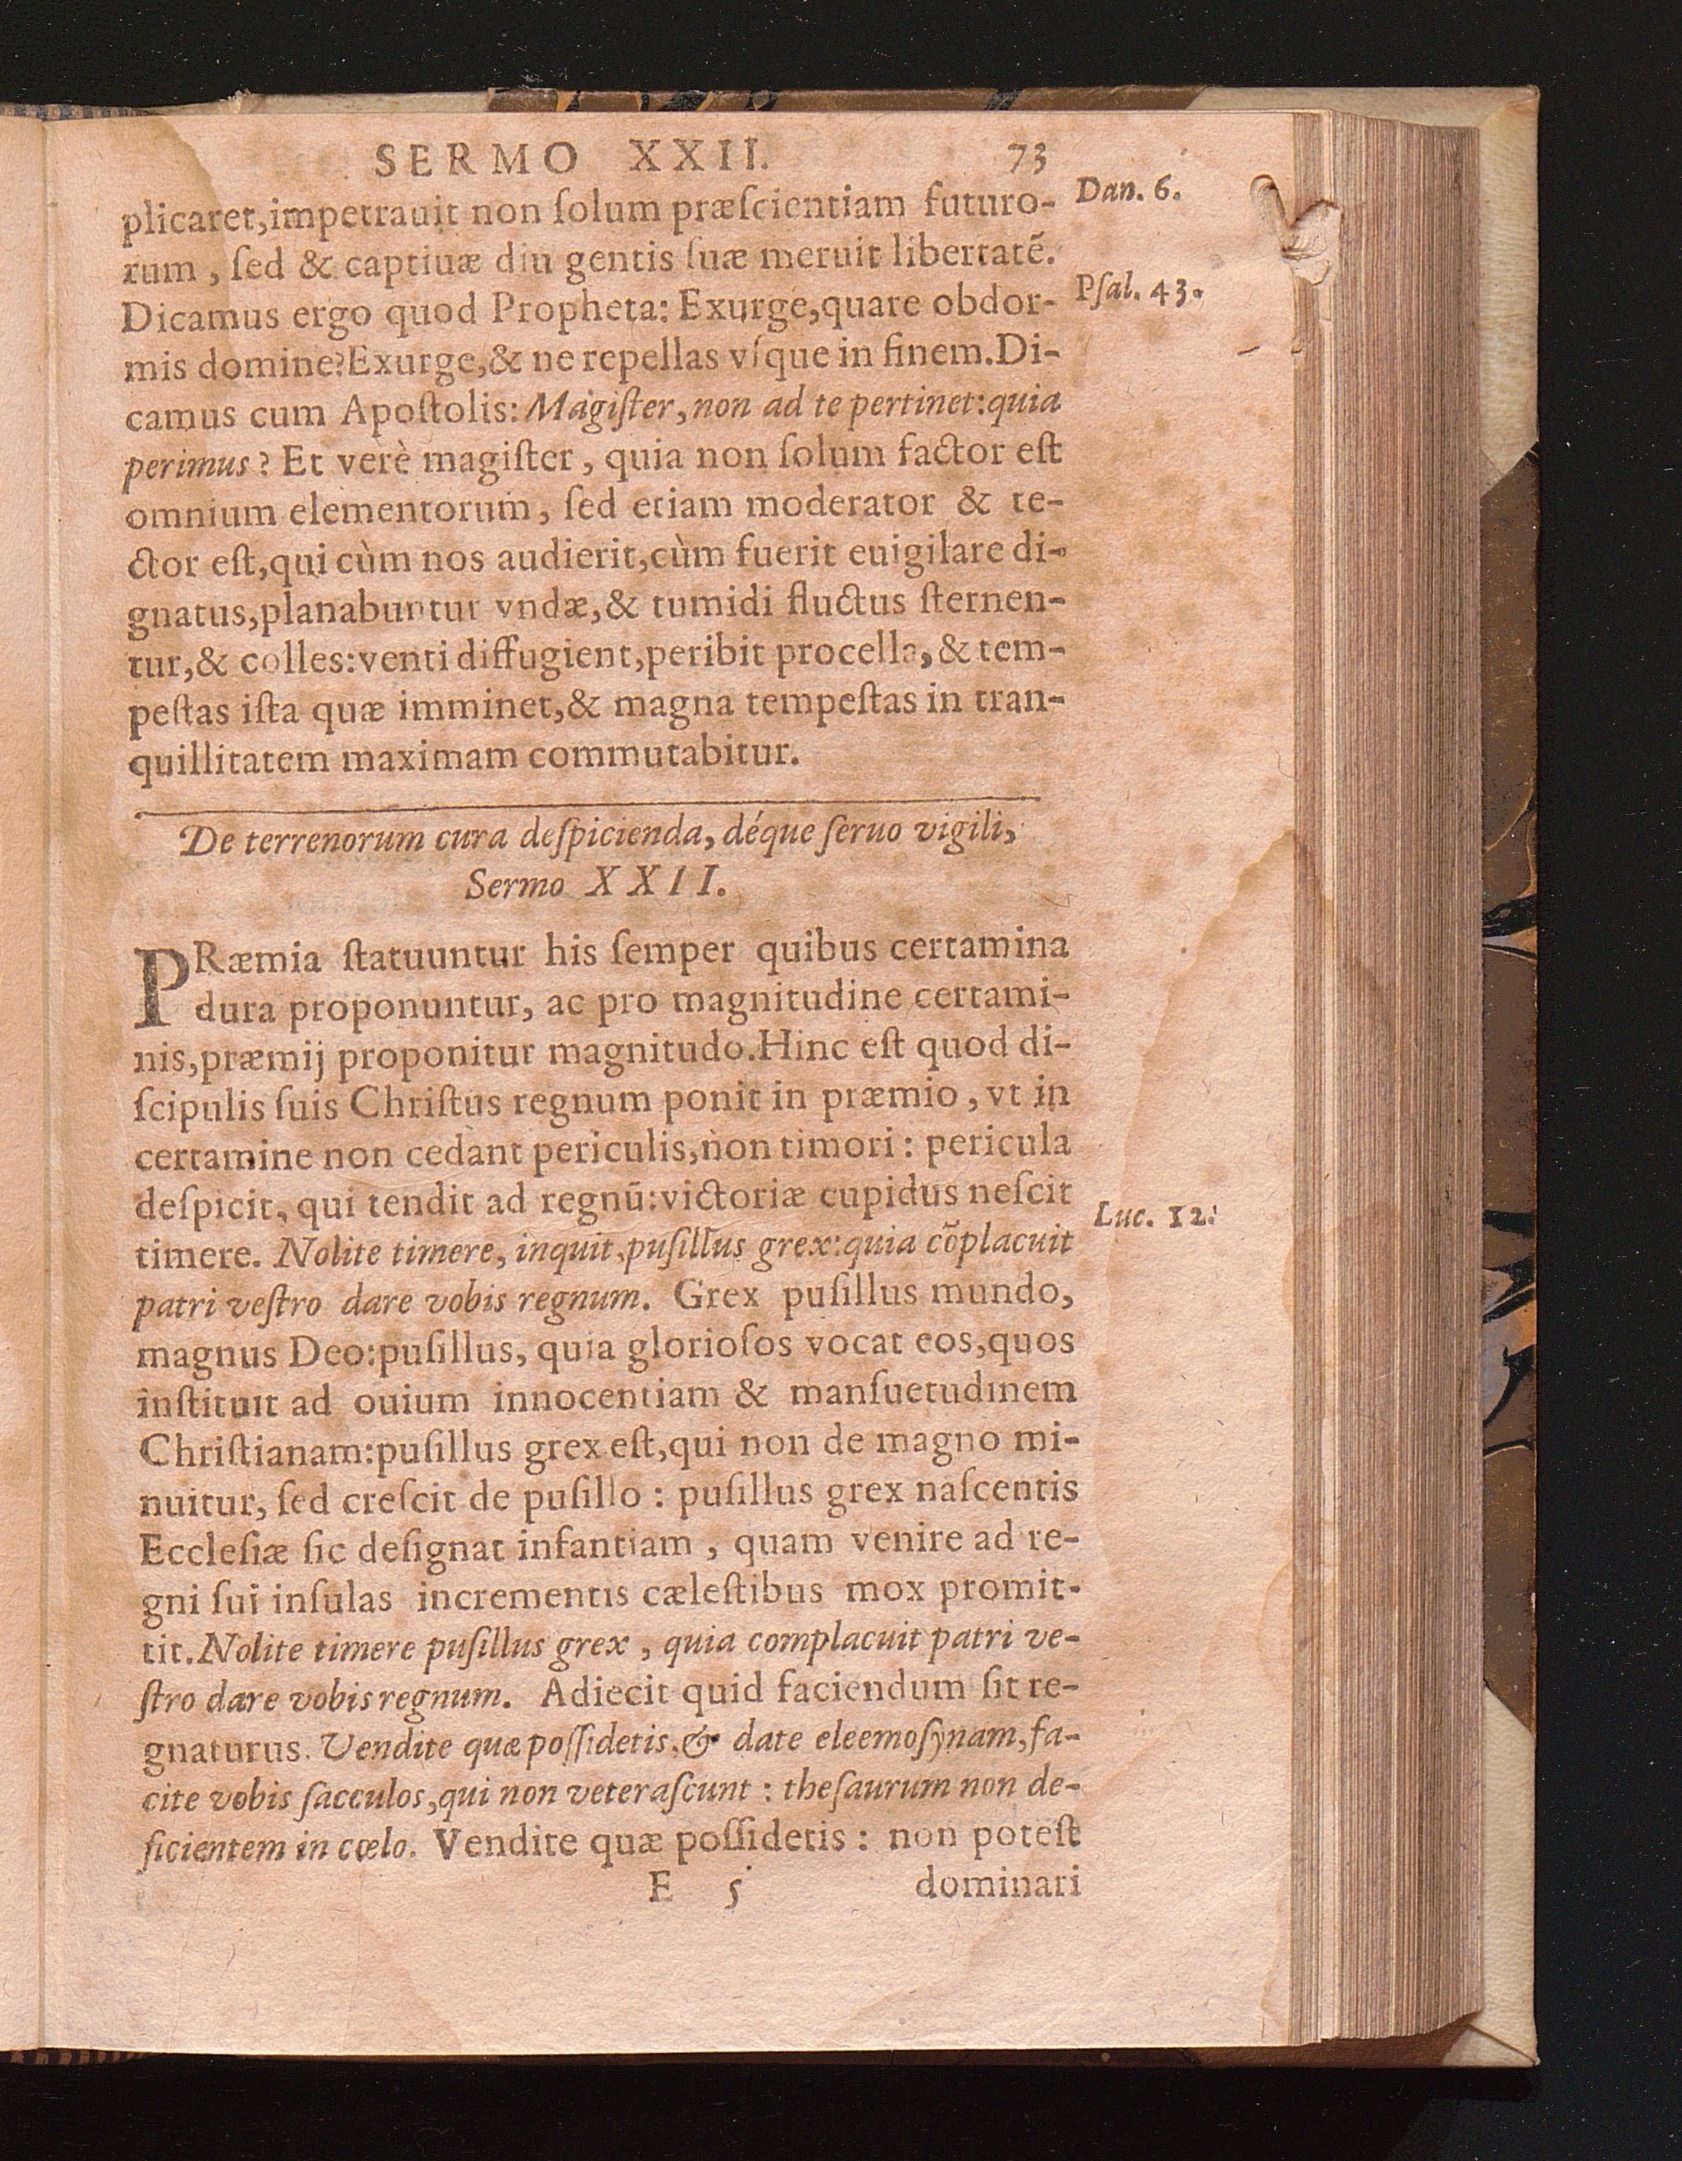 SERMO XXII. 73
plicaret,impetrauit non ſolum præſcientiam futuro-
Dan. 6.
rum , ſed & captiuæ diu gentis ſuæ meruit libertatẽ.
Dicamus ergo quod Propheta: Exurge,quare obdor-
Pſal. 43.
mis domine?Exurge,& ne repellas vſque in finem.Di-
camus cum Apoſtolis: Magiſter, non ad te pertinet:quia
perimus? Et verè magiſter , quia non ſolum factor eſt
omnium elementorum, ſed etiam moderator & te-
ctor eſt,qui cùm nos audierit,cùm fuerit euigilare di-
gnatus,planabuntur vndæ,& tumidi fluctus ſternen-
tur,& colles:venti diffugient,peribit procella,& tem-
peſtas iſta quæ imminet,& magna tempeſtas in tran-
quillitatem maximam commutabitur.
De terrenorum cura deſpicienda, déque ſeruo vigili,
Sermo XXII.
PRæmia ſtatuuntur his ſemper quibus certamina
dura proponuntur, ac pro magnitudine certami-
nis,præmij proponitur magnitudo.Hinc eſt quod di-
ſcipulis ſuis Chriſtus regnum ponit in præmio , vt in
certamine non cedant periculis,non timori : pericula
deſpicit, qui tendit ad regnũ:victoriæ cupidus neſcit
Luc. 12.
timere. Nolite timere, inquit,puſillus grex:quia cõplacuit
patri veſtro dare vobis regnum. Grex puſillus mundo,
magnus Deo:puſillus, quia glorioſos vocat eos,quos
inſtituit ad ouium innocentiam & manſuetudinem
Chriſtianam:puſillus grex eſt,qui non de magno mi-
nuitur, ſed creſcit de puſillo : puſillus grex naſcentis
Eccleſiæ ſic deſignat infantiam , quam venire ad re-
gni ſui inſulas incrementis cæleſtibus mox promit-
tit. Nolite timere puſillus grex , quia complacuit patri ve-
ſtro dare vobis regnum. Adiecit quid faciendum ſit re-
gnaturus. Vendite quæ poſſidetis,& date eleemoſynam,fa-
cite vobis ſacculos,qui non veteraſcunt : theſaurum non de-
ficientem in cœlo. Vendite quæ poſſidetis : non poteſt
E 5 dominari